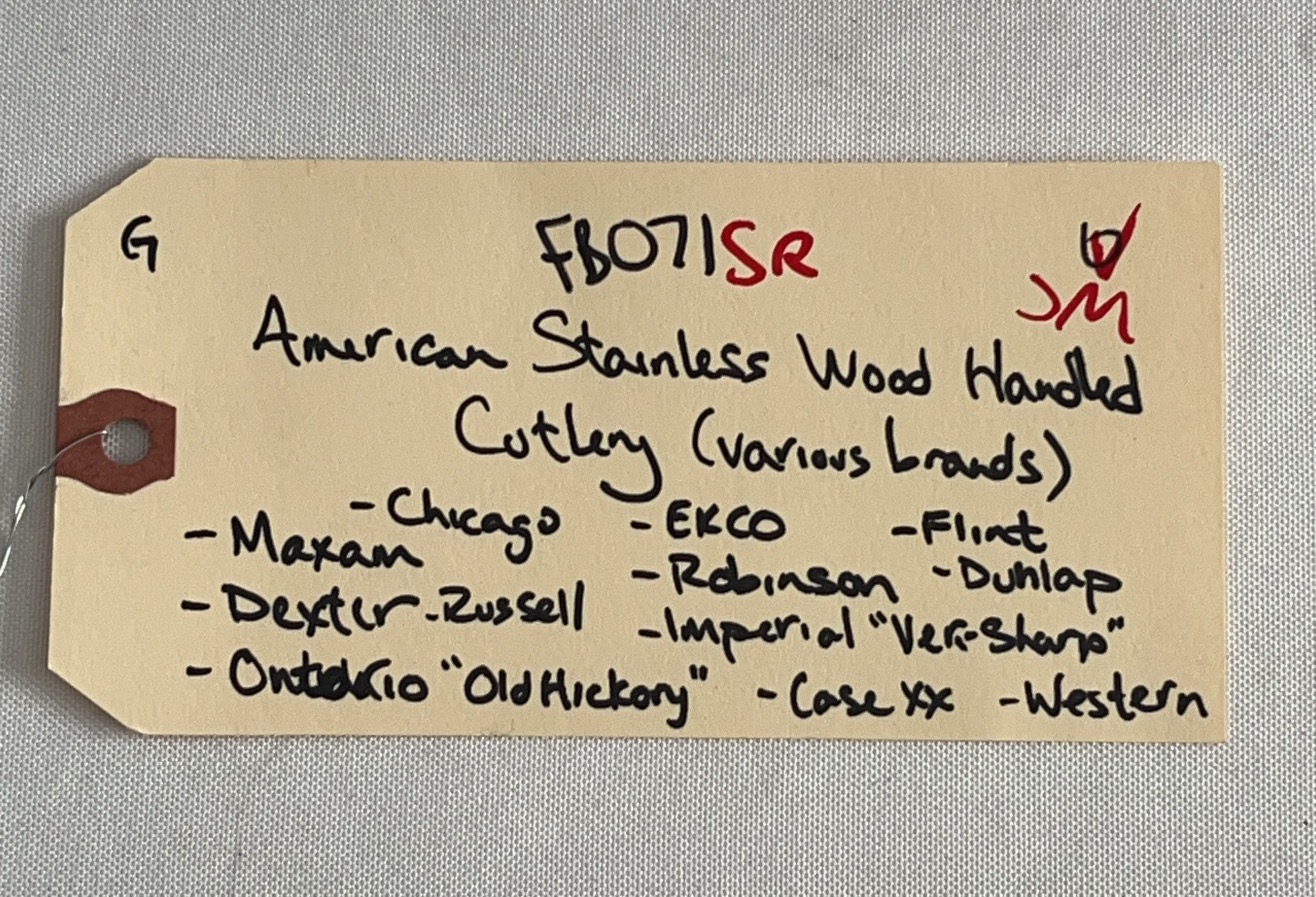 G FB071SR
JM
American Stainless Wood Handled
Cutlery (various brands)
- Chicago - EKCO - Flint
- Maxam - Robinson - Dunlap
- Dexter-Russell - Imperial "Veri-Sharp"
- Ontario "Old Hickory" - Case XX - Western